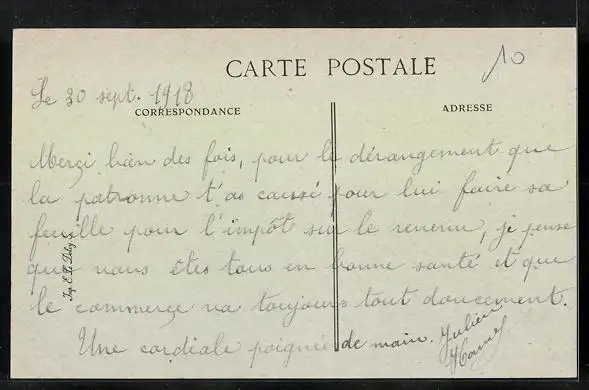 CARTE POSTALE
10
Le 30 sept. 1918
CORRESPONDANCE
ADRESSE
Merci bien des fois, pour le dérangement que
la patronne t'as causé pour lui faire sa
feuille pour l'impôt sur le revenu, je pense
que vous êtes tous en bonne santé et que
le commerce va toujours tout doucement.
Une cordiale poignée de main. Julien
Imp. E. Le Deley